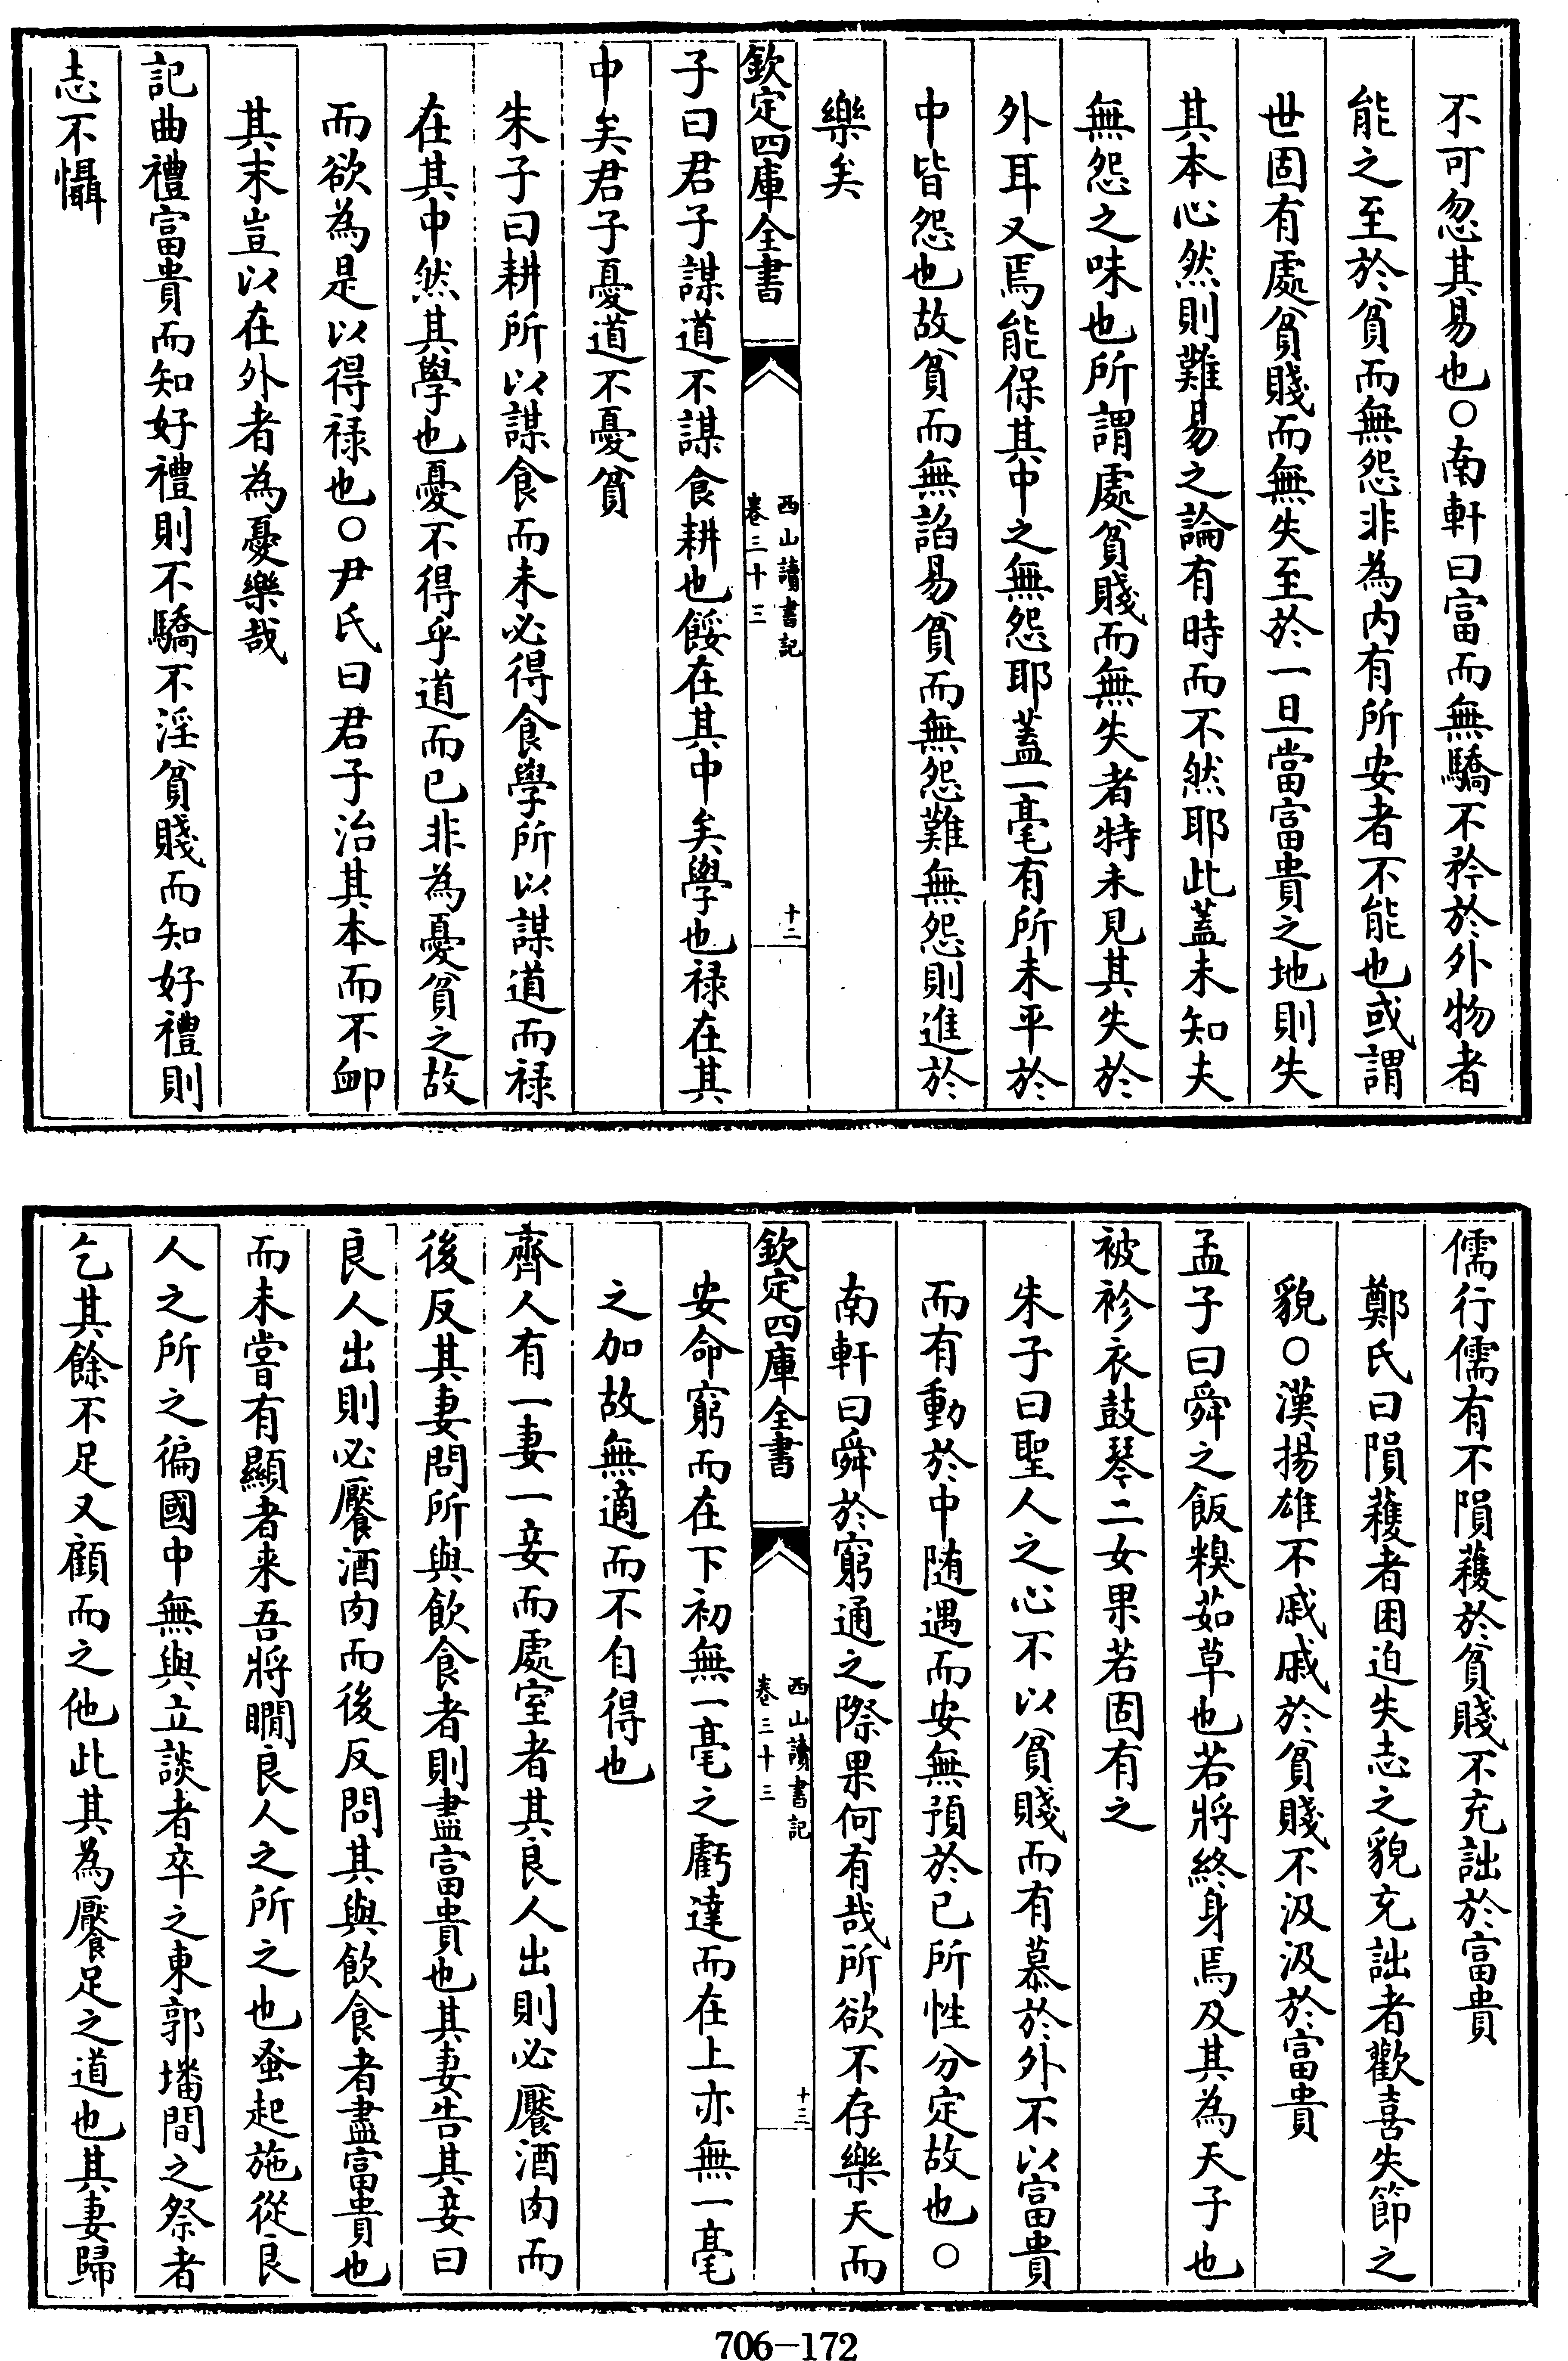 不可忽其易也○南軒曰富而無驕不矜於外物者
能之至於貧而無怨非為内有所安者不能也或謂
世固有處貧賤而無失至於一旦當富貴之地則失
其本心然則難易之論有時而不然耶此蓋未知夫
無怨之味也所謂處貧賤而無失者特未見其失於
外耳又焉能保其中之無怨耶蓋一毫有所未平於
中皆怨也故貧而無諂易貧而無怨難無怨則進於
樂矣
欽定四庫全書
西山讀書記
卷三十三
十二
子曰君子謀道不謀食耕也餒在其中矣學也禄在其
中矣君子憂道不憂貧
朱子曰耕所以謀食而未必得食學所以謀道而禄
在其中然其學也憂不得乎道而已非為憂貧之故
而欲為是以得禄也○尹氏曰君子治其本而不䘏
其末豈以在外者為憂樂哉
記曲禮富貴而知好禮則不驕不淫貧賤而知好禮則
志不懾
儒行儒有不隕穫於貧賤不充詘於富貴
鄭氏曰隕穫者困迫失志之貌充詘者歡喜失節之
貌○漢揚雄不戚戚於貧賤不汲汲於富貴
孟子曰舜之飯糗茹草也若將終身焉及其為天子也
被袗衣鼓琴二女果若固有之
朱子曰聖人之心不以貧賤而有慕於外不以富貴
而有動於中随遇而安無預於已所性分定故也○
南軒曰舜於窮通之際果何有哉所欲不存樂天而
欽定四庫全書
西山讀書記
卷三十三
十三
安命窮而在下初無一毫之虧達而在上亦無一毫
之加故無適而不自得也
齊人有一妻一妾而處室者其良人出則必饜酒肉而
後反其妻問所與飲食者則盡富貴也其妻告其妾曰
良人出則必饜酒肉而後反問其與飲食者盡富貴也
而未嘗有顯者来吾將瞯良人之所之也蚤起施從良
人之所之徧國中無與立談者卒之東郭墦間之祭者
乞其餘不足又顧而之他此其為饜足之道也其妻歸
706-172